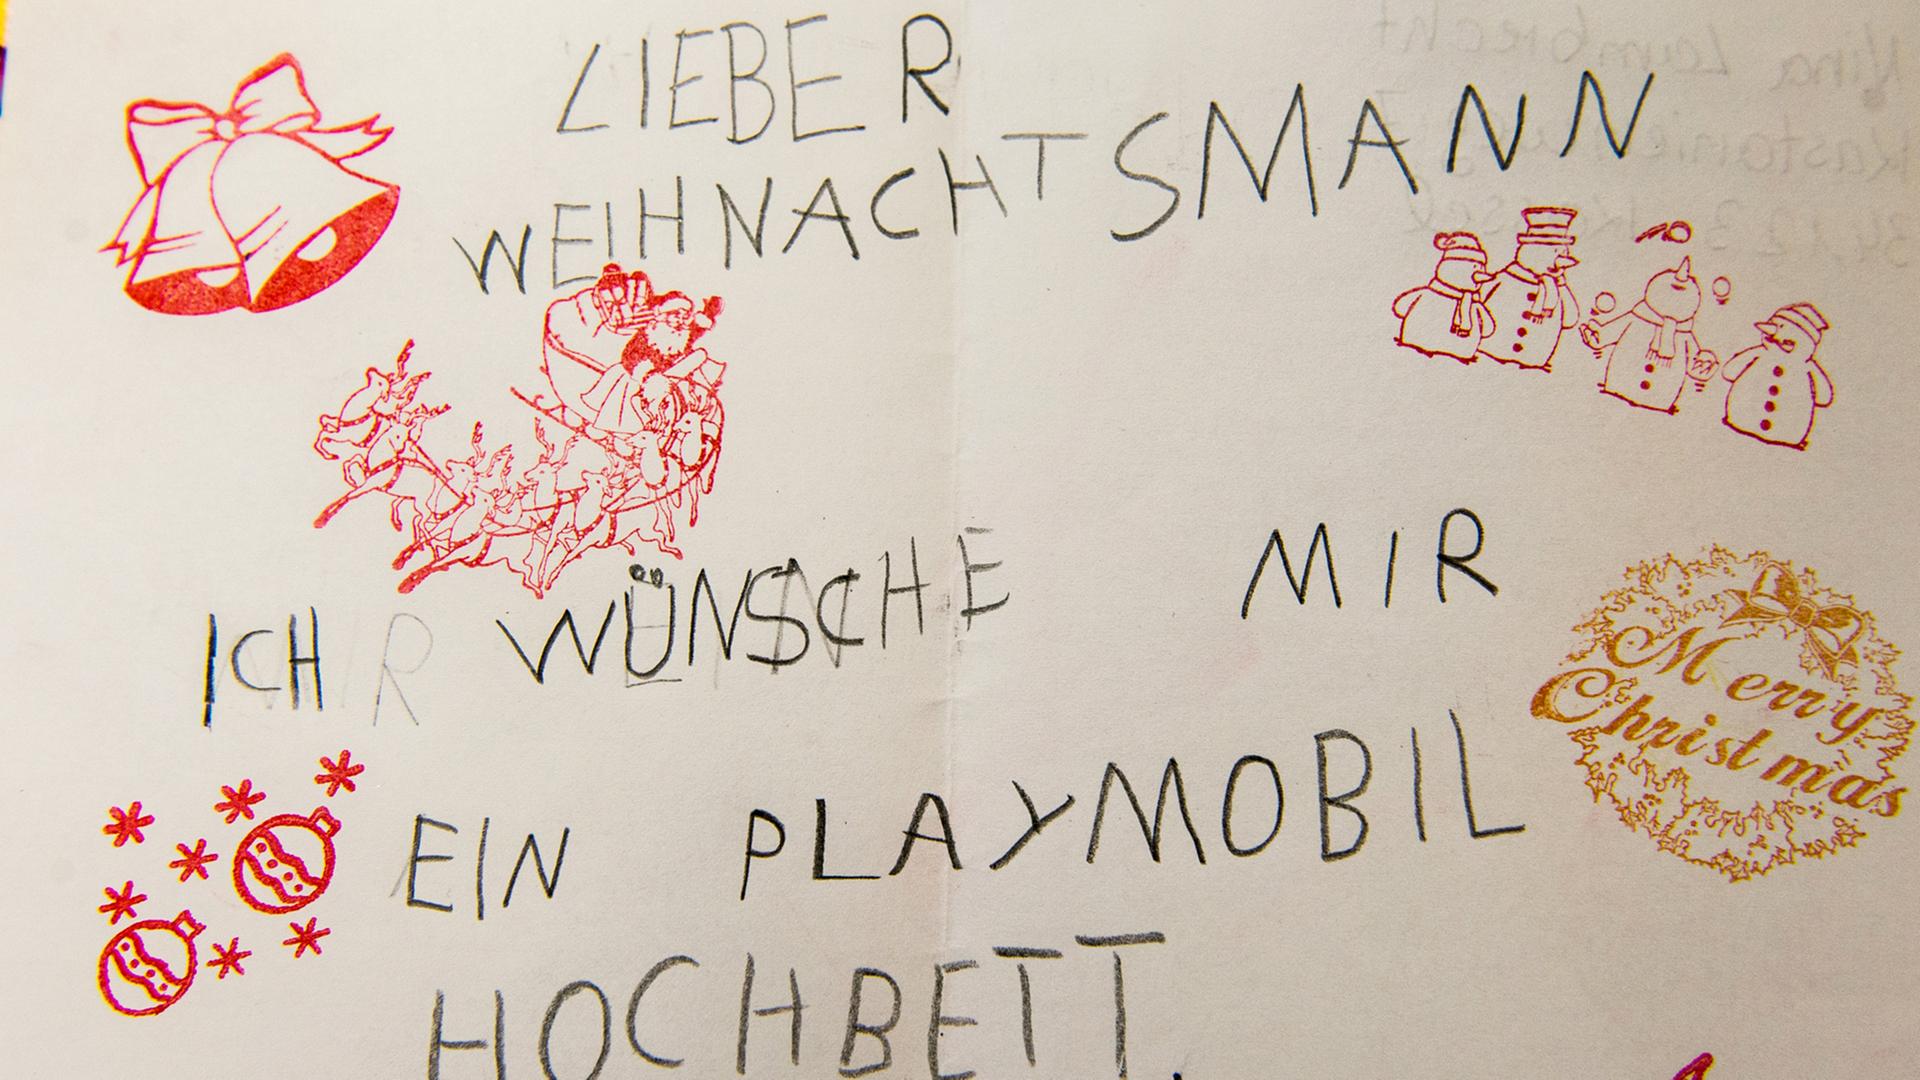 LIEBER
WEIHNACHTSMANN
ICH WÜNSCHE MIR
Merry
Christmas
EIN PLAYMOBIL
HOCHBETT.